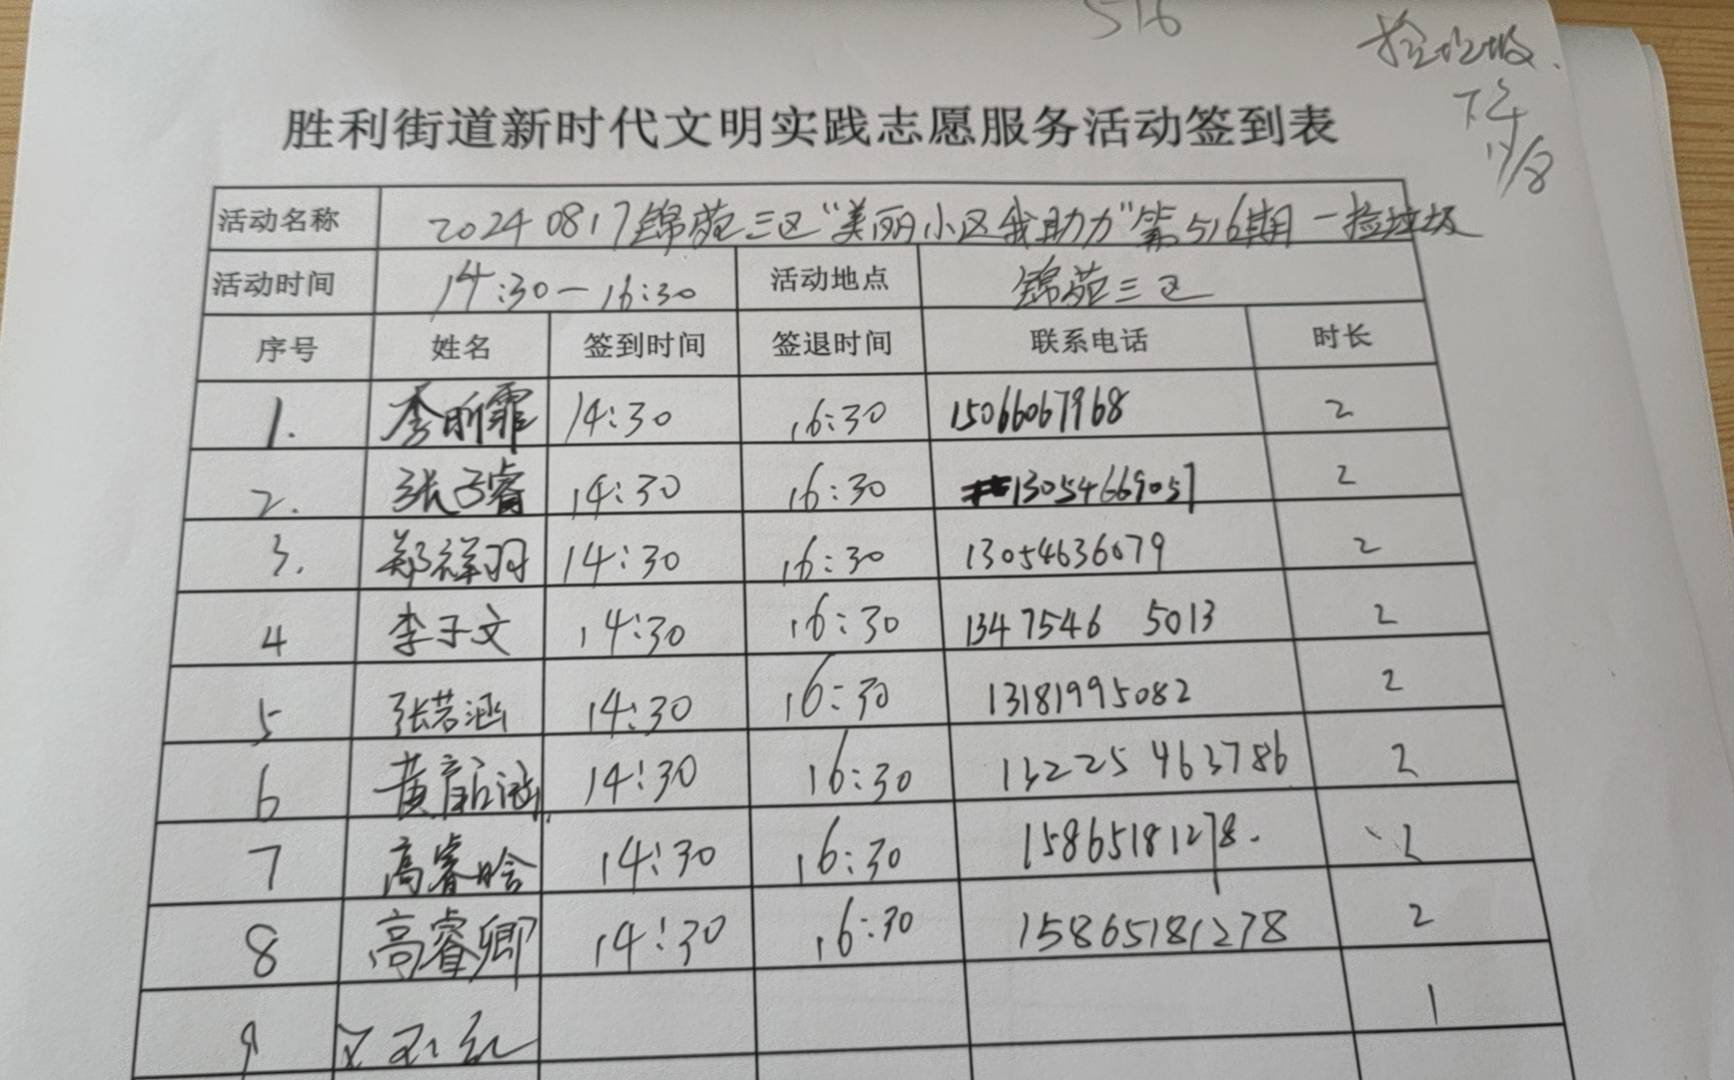 516
捡垃圾.
下午
17/8
胜利街道新时代文明实践志愿服务活动签到表
活动名称 20240817锦苑三区“美丽小区我助力”第516期－捡垃圾
活动时间 14:30－16:30 活动地点 锦苑三区
序号 姓名 签到时间 签退时间 联系电话 时长
1. 李昕霏 14:30 16:30 15066067968 2
2. 张子睿 14:30 16:30 13054669057 2
3. 郑祥羽 14:30 16:30 13054636079 2
4 李子文 14:30 16:30 1347546 5013 2
5 张若涵 14:30 16:30 13181995082 2
6 黄歆涵 14:30 16:30 132225 463786 2
7 高睿晗 14:30 16:30 15865181278. 2
8 高睿卿 14:30 16:30 15865181278 2
9 1